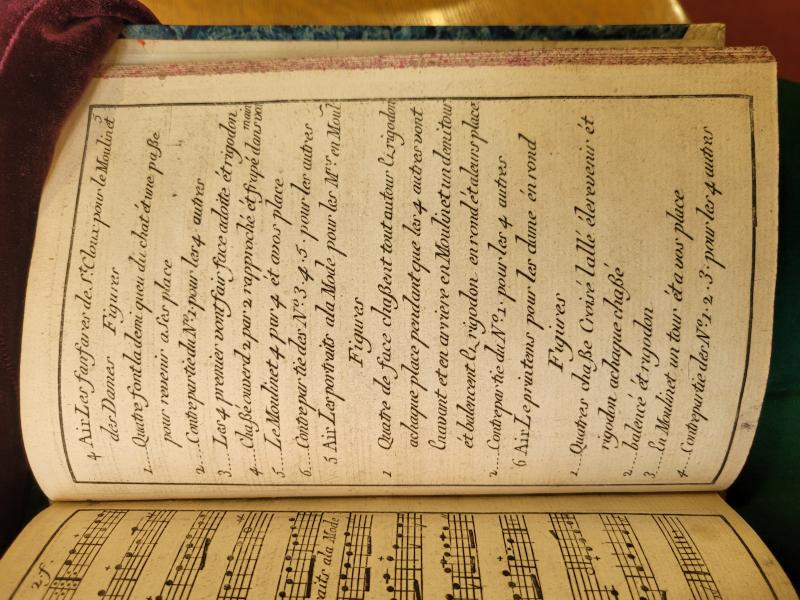 3
4 Air Les fanfares de St. Cloux pour le Moulin et
des Dames Figures
1.... Quatre font la demi queu du chat ét une paße
pour revenir a les place
2.... Contrepartie du No. 1 pour les 4 autres
3.... Les 4 premier vont fair face adoite ét rigodon
4.... Chaßé ouverd 2 par 2 rapproché ét frapé dans vos
main
5.... Le Moulinet 4 par 4 et a nos place
6.... Contrepartie des No. 3. 4. 5. pour les autres
5 Air Les portraits ala Mode pour les Mrs en Moul
Figures
1 Quatre de face chaßent tout autour & rigodon
achaque place pendant que les 4 autres vont
En avant et en arriere en Moulinet un demi tour
ét balencent & rigodon en rond ét a leurs place
2.... Contrepartie du No. 1. pour les 4 autres
6 Air Le printems pour les dame en rond
Figures
1.... Quatres chaße Croisé l'allé éle revenir ét
rigodon achaque chaßé
2.... balencé ét rigodon
3 .... En Moulinet un tour ét a vos place
4.... Contrepartie des No. 1. 2. 3. pour les 4 autres
2.f.
raits ala Mode